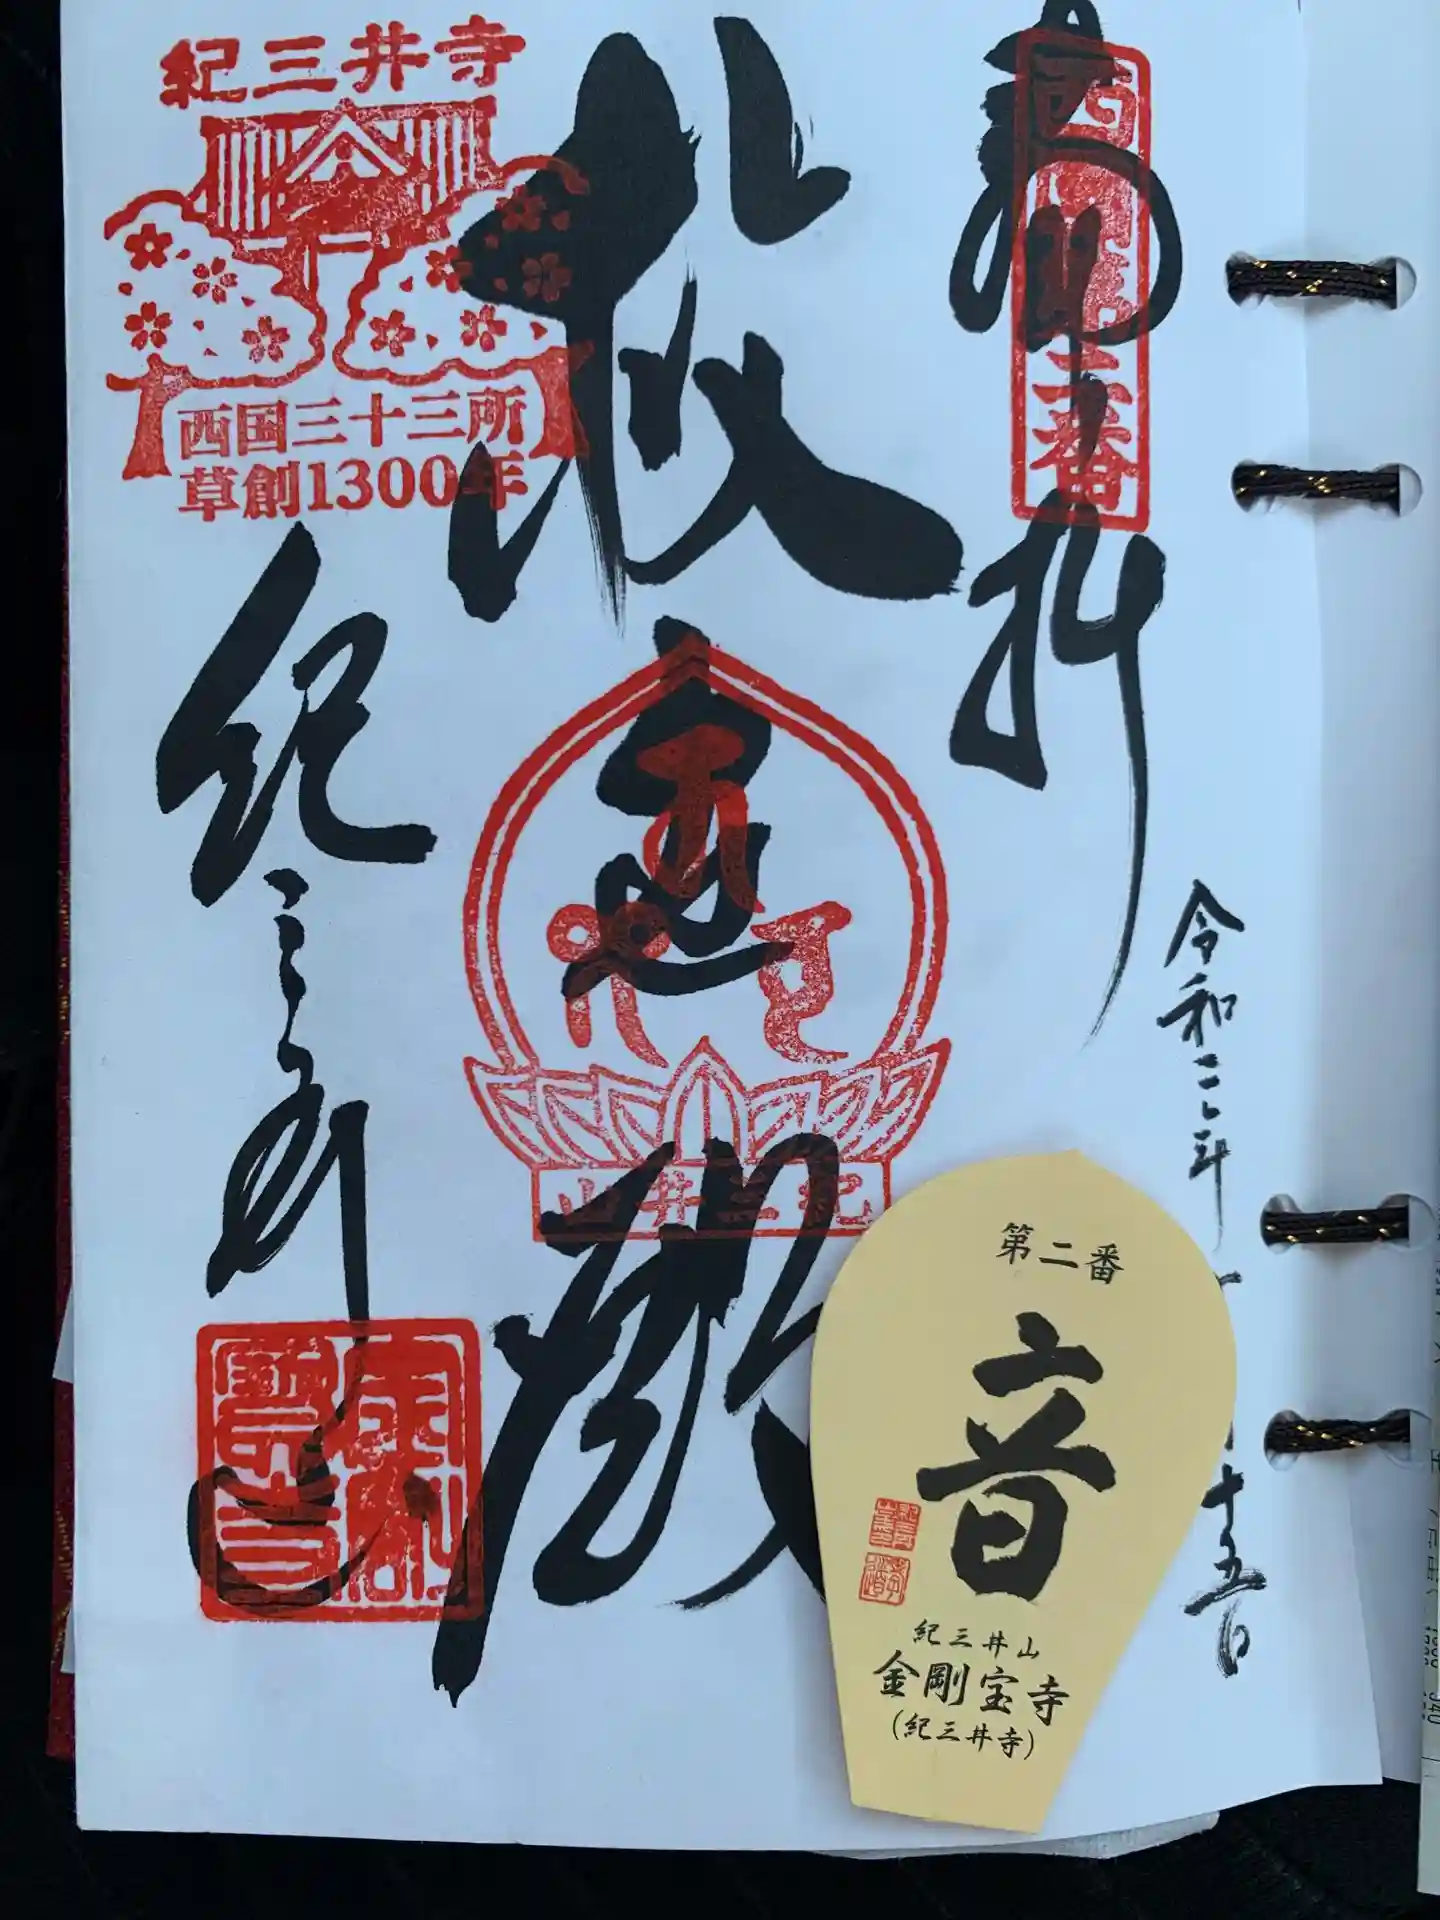 奉拝
西国第二番
令和二年
十五日
救世殿
紀三井山
紀三井寺
西国三十三所
草創1300年
紀三井寺
金剛
宝寺
第二番
音
紀三井山
金剛宝寺
(紀三井寺)